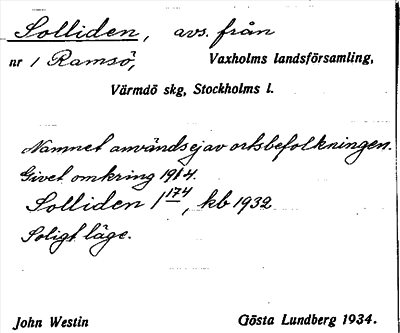 Solliden, avs. från
nr 1 Ramsö, Vaxholms landsförsamling,
Värmdö skg, Stockholms l.
Namnet användsej av ortsbefolkningen.
Givet omkring 1914.
Solliden 1¹⁷⁴, kb 1932
Soligt läge.
John Westin Gösta Lundberg 1934.